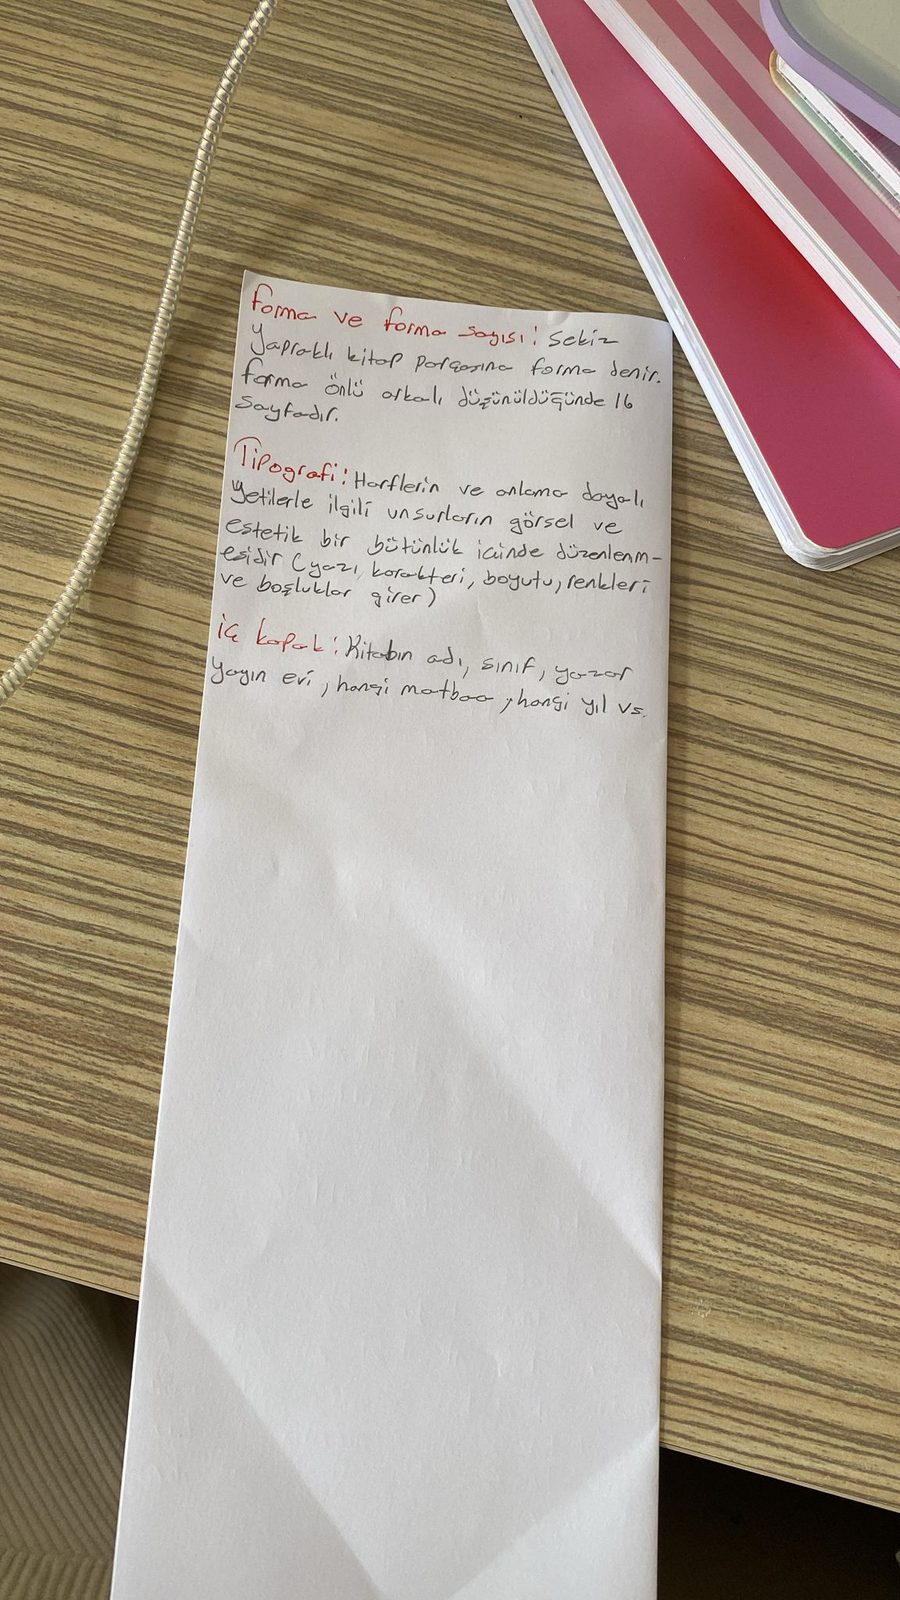 Forma ve forma sayısı: Sekiz
yapraklı kitap parçasına forma denir.
forma önlü arkalı düşünüldüğünde 16
sayfadır.
Tipografi: Harflerin ve anlama dayalı
yetilerle ilgili unsurların görsel ve
estetik bir bütünlük içinde düzenlenm-
esidir (yazı, karakteri, boyutu, renkleri
ve boşluklar girer)
iç kapak: Kitabın adı, sınıf, yazar
yayın evi, hangi matbaa, hangi yıl vs.